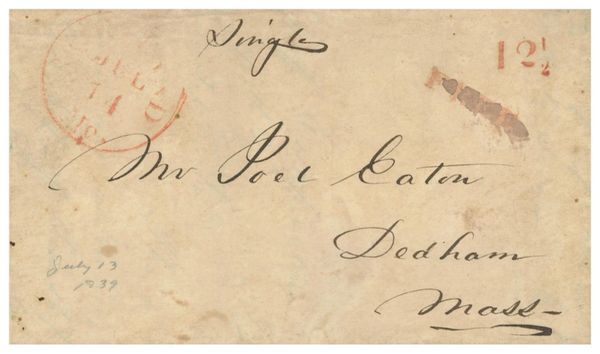 Single
12½
14
Mr Joel Eaton
Dedham
Mass
July 13
1839